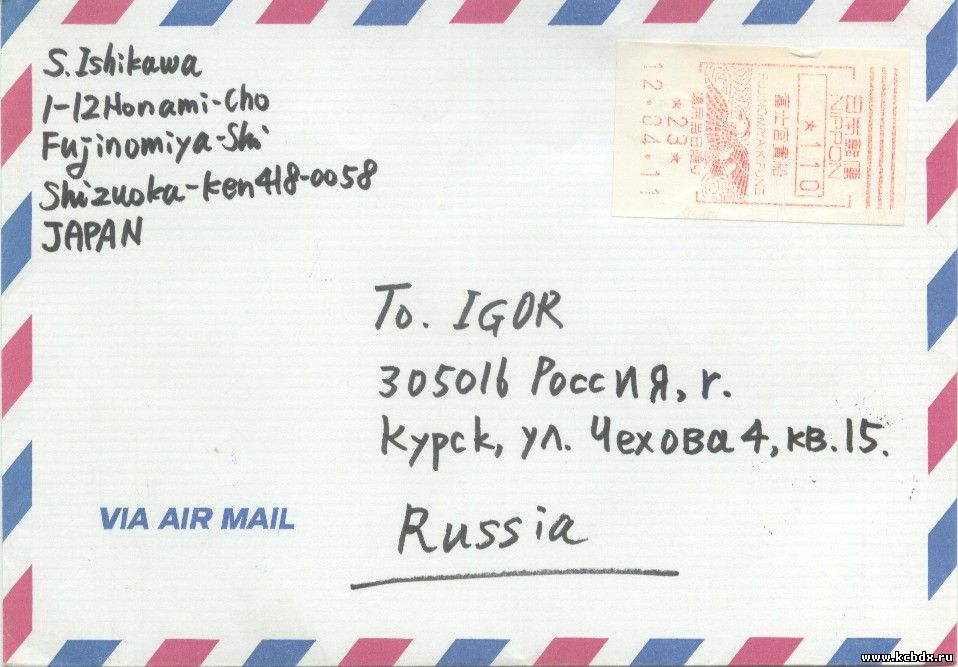 S. Ishikawa
1-12 Honami-Cho
Fujinomiya-Shi
Shizuoka-Ken 418-0058
JAPAN
日本郵便
NIPPON
*110
富士宮貴船
FUJINOMIYA KIFUNE
*23*
12.04.11
To. IGOR
305016 Россия, г.
Курск, ул. Чехова 4, кв. 15.
Russia
VIA AIR MAIL
www.kcbdx.ru